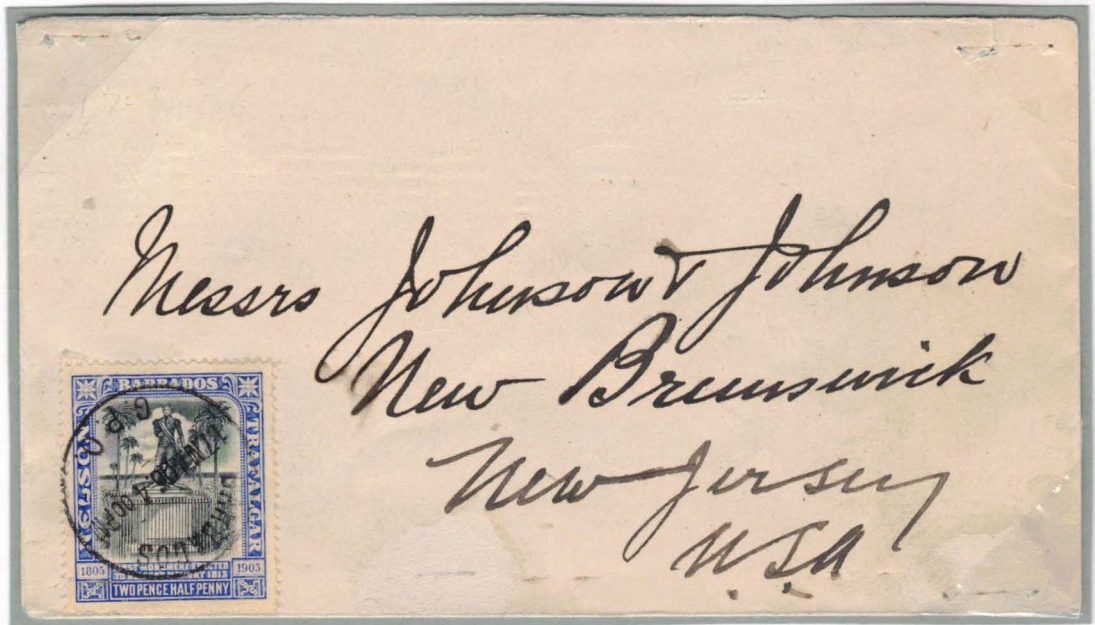 Messrs Johnson & Johnson
New Brunswick
New Jersey
U.S.A
BARBADOS
NELSON
TRAFALGAR
1805 1905
TWO PENCE HALF PENNY
G.P.O
BARBADOS
4 00 PM